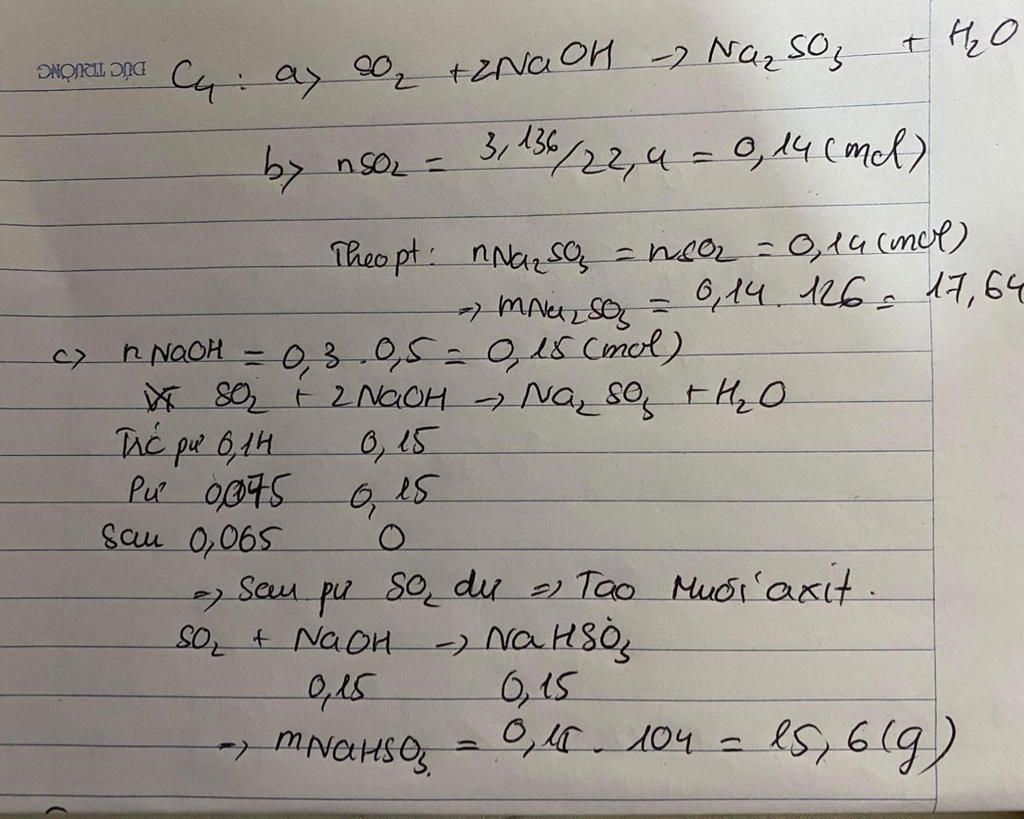 ĐỨC TRƯỜNG
C4: a) SO₂ + 2NaOH → Na₂SO₃ + H₂O
b) nSO₂ = 3,136/22,4 = 0,14 (mol)
Theo pt: nNa₂SO₃ = nSO₂ = 0,14 (mol)
=> mNa₂SO₃ = 0,14 . 126 = 17,64
c) nNaOH = 0,3 . 0,5 = 0,15 (mol)
SO₂ + 2NaOH → Na₂SO₃ + H₂O
Trc pư 0,14 0,15
Pư 0,075 0,15
Sau 0,065 0
=> Sau pư SO₂ dư => Tạo Muối axit.
SO₂ + NaOH → NaHSO₃
0,15 0,15
=> mNaHSO₃ = 0,15 . 104 = 15,6 (g)